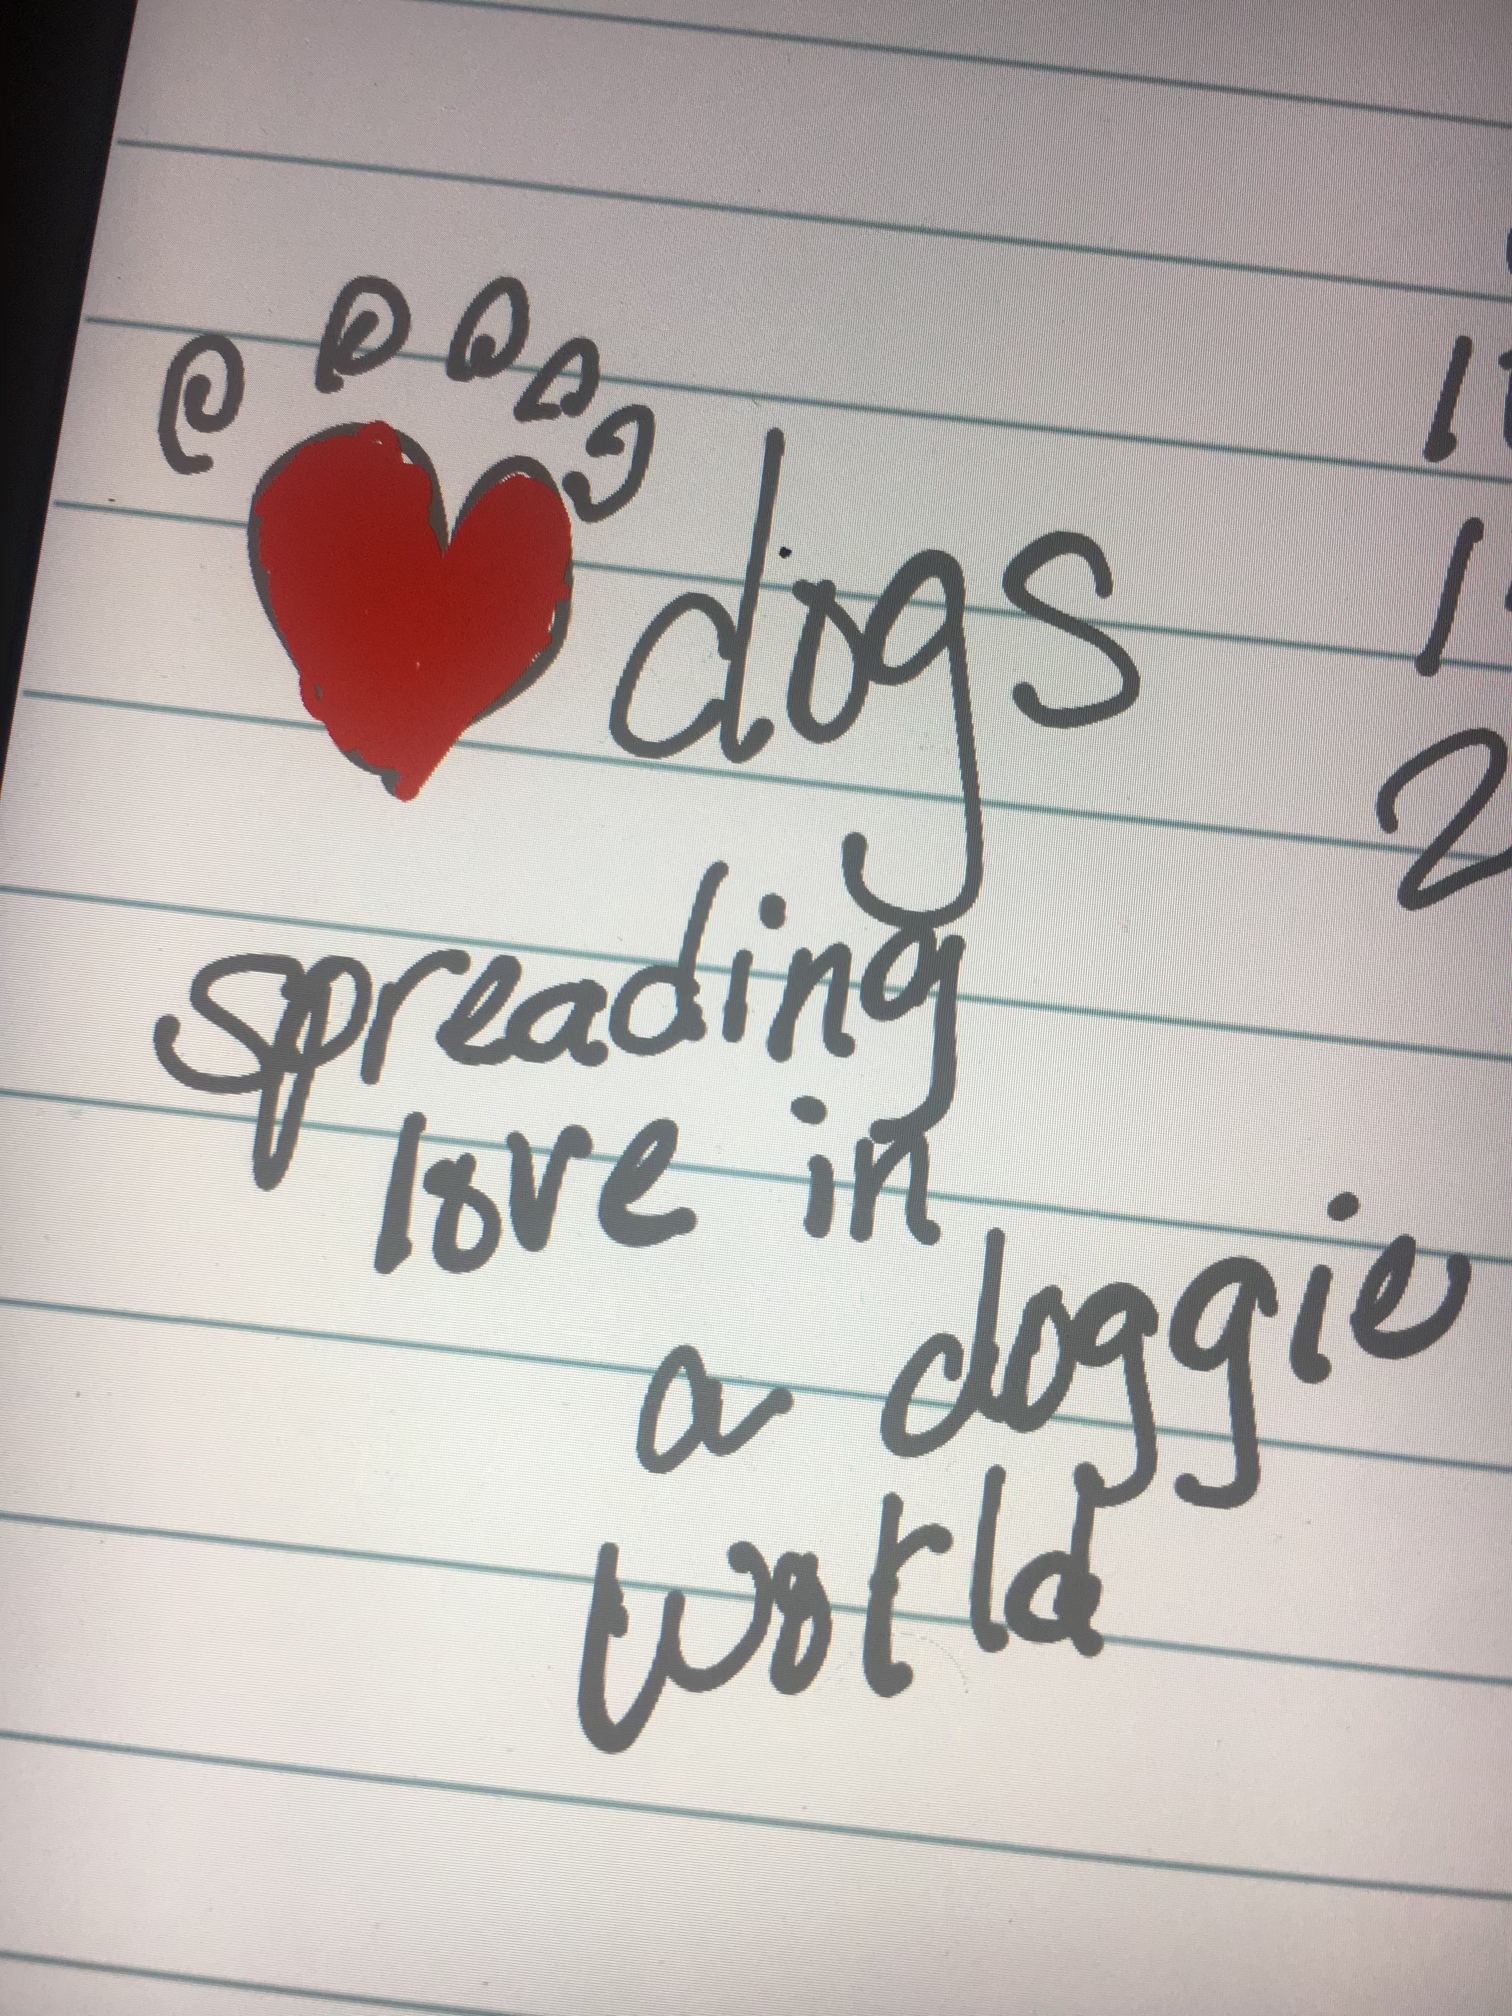 dogs
spreading
love in
a doggie
world
1
1
2